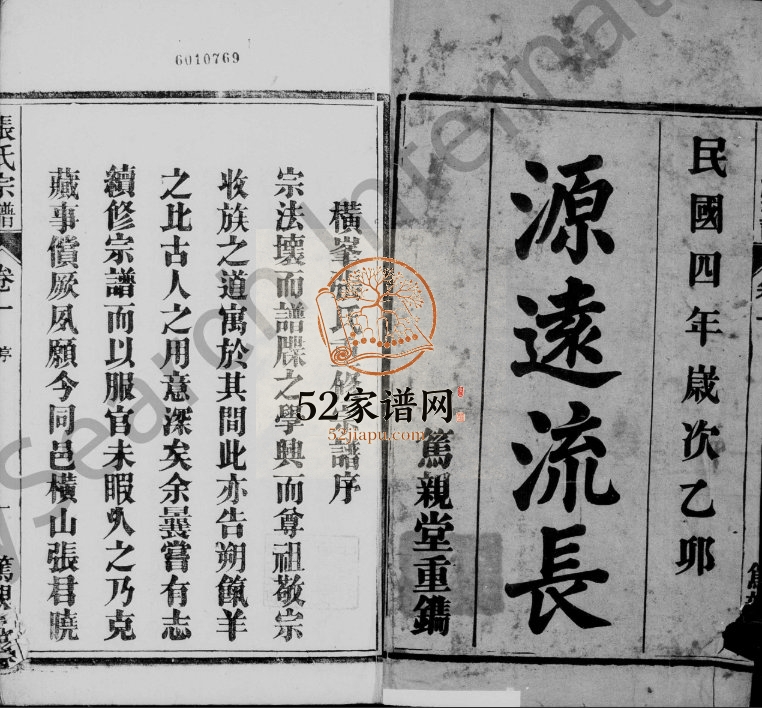 民國四年歲次乙卯
源遠流長
篤親堂重鐫
6010769
橫峯張氏重修宗譜序
宗法壞而譜牒之學興而尊祖敬宗
收族之道寓於其間此亦告朔餼羊
之比古人之用意深矣余曩嘗有志
續修宗譜而以服官未暇久之乃克
蕆事償厥夙願今同邑橫山張君曉
張氏宗譜
卷一
序
一
52家谱网
52jiapu.com
Search International